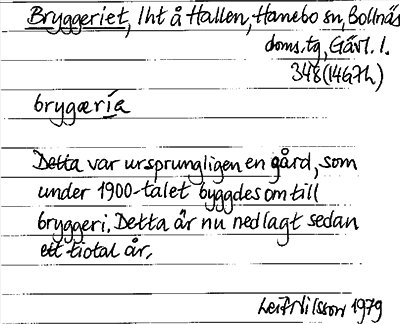 Bryggeriet, lht å Hallen, Hanebo sn, Bollnäs
doms.tg, Gävl. l.
348 (14G7h)
brygæría
Detta var ursprungligen en gård, som
under 1900-talet byggdes om till
bryggeri. Detta är nu nedlagt sedan
ett tiotal år.
Leif Nilsson 1979